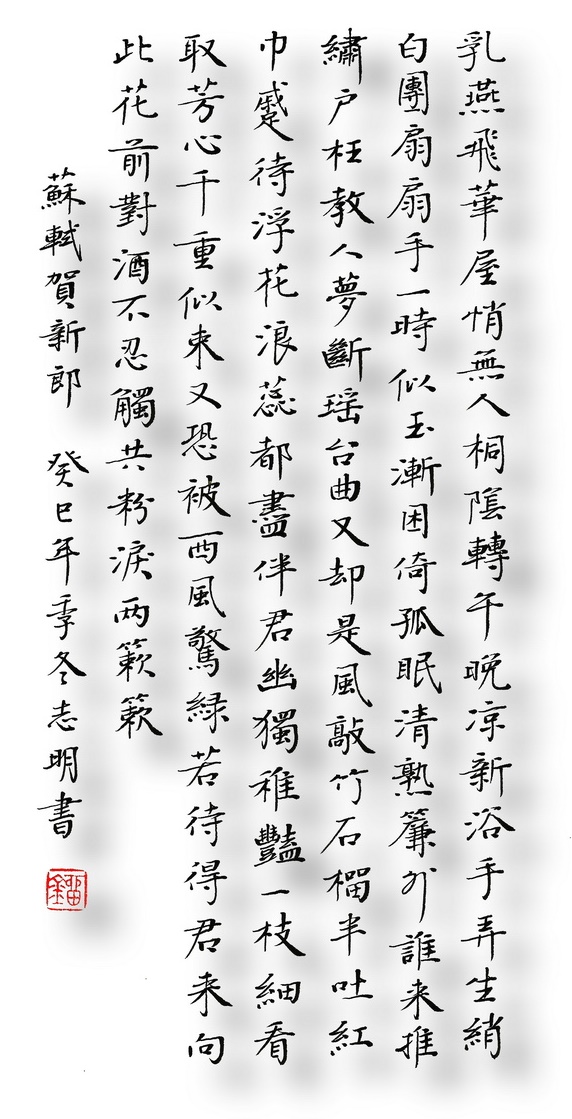 乳燕飛華屋悄無人桐陰轉午晚凉新浴手弄生綃
白團扇扇手一時似玉漸困倚孤眠清熟簾外誰来推
繡户枉教人夢斷瑶台曲又却是風敲竹石榴半吐紅
巾蹙待浮花浪蕊都盡伴君幽獨稚豔一枝細看
取芳心千重似束又恐被西風驚緑若待得君来向
此花前對酒不忍觸共粉淚两簌簌
蘇軾賀新郎 癸巳年季冬志明書